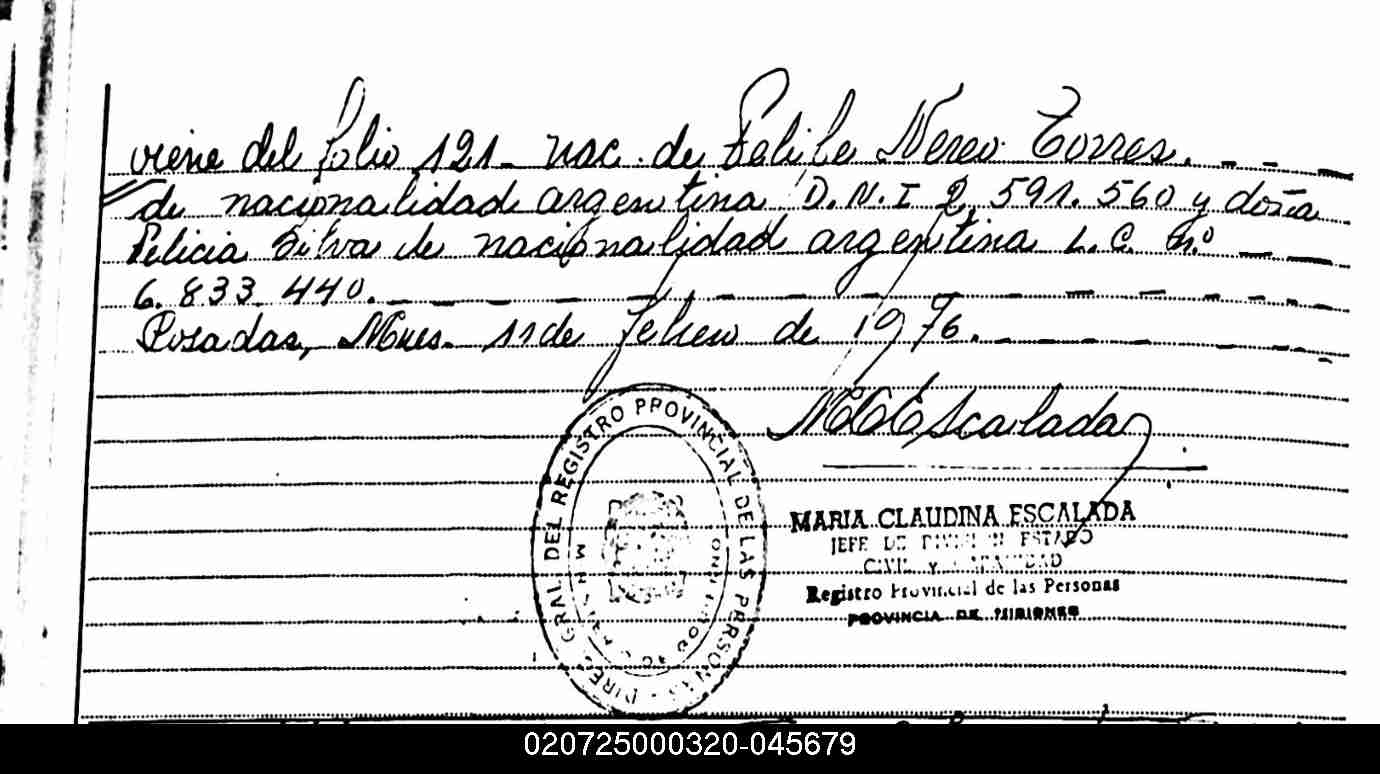 viene del folio 121 - nac. de Felipe Nereo Torres. - - -
de nacionalidad argentina D.N.I 2.591.560 y doña
Felicia Silva de nacionalidad argentina L.C. nº - -
6.833.440. - - - - - - - - - -
Posadas, Mnes. 11 de febrero de 1976. - - - - -
MCEscalada
MARIA CLAUDINA ESCALADA
JEFE DE DIVISION ESTADO
CIVIL Y CAPACIDAD
Registro Provincial de las Personas
PROVINCIA DE MISIONES
DIREC. GRAL. DEL REGISTRO PROVINCIAL DE LAS PERSONAS
020725000320-045679